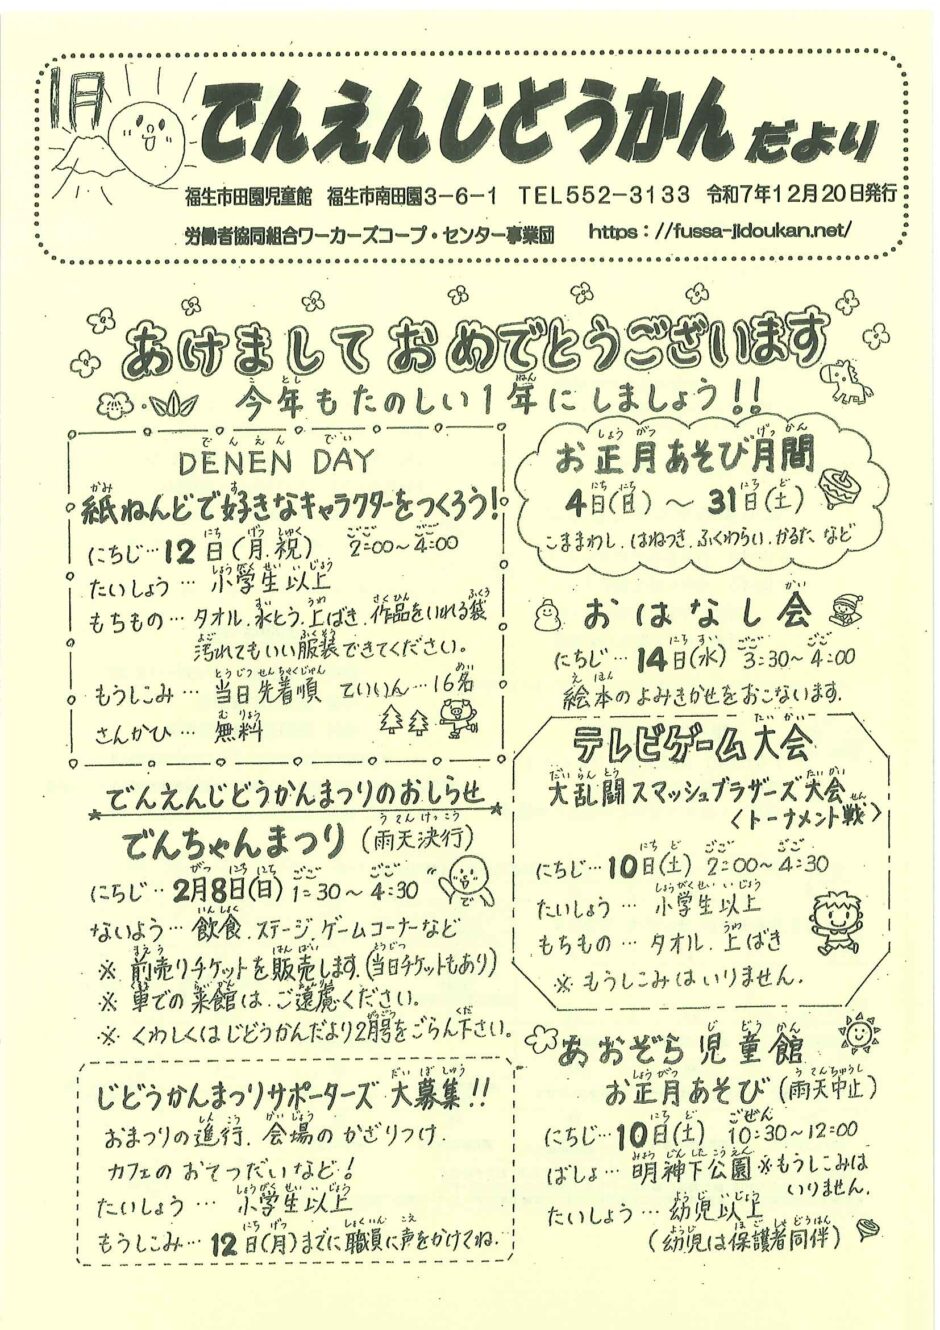 1月
でんえんじどうかんだより
福生市田園児童館 福生市南田園3-6-1 TEL552-3133 令和7年12月20日発行
労働者協同組合ワーカーズコープ・センター事業団 https://fussa-jidoukan.net/
あけましておめでとうございます
今年もたのしい1年にしましょう!!
DENEN DAY
でんえんでい
紙ねんどで好きなキャラクターをつくろう!
にちじ…12日(月.祝) 2:00~4:00
たいしょう…小学生以上
もちもの…タオル.水とう.上ばき.作品をいれる袋
汚れてもいい服装できてください。
もうしこみ…当日先着順 ていいん…16名
さんかひ…無料
でんえんじどうかんまつりのおしらせ
でんちゃんまつり(雨天決行)
にちじ…2月8日(日) 1:30~4:30
ないよう…飲食.ステージ.ゲームコーナーなど
※前売りチケットを販売します.(当日チケットもあり)
※車での来館は、ご遠慮ください。
※くわしくはじどうかんだより2月号をごらん下さい。
じどうかんまつりサポーターズ 大募集!!
おまつりの進行.会場のかざりつけ.
カフェのおてつだいなど!
たいしょう…小学生以上
もうしこみ…12日(月)までに職員に声をかけてね.
お正月あそび月間
4日(日)~31日(土)
こままわし.はねつき.ふくわらい.かるた、など
おはなし会
にちじ…14日(水) 3:30~4:00
絵本のよみきかせをおこないます.
テレビゲーム大会
大乱闘スマッシュブラザーズ大会
<トーナメント戦>
にちじ…10日(土) 2:00~4:30
たいしょう…小学生以上
もちもの…タオル.上ばき
※もうしこみはいりません.
あおぞら児童館
お正月あそび(雨天中止)
にちじ…10日(土) 10:30~12:00
ばしょ…明神下公園 ※もうしこみは
いりません.
たいしょう…幼児以上
(幼児は保護者同伴)